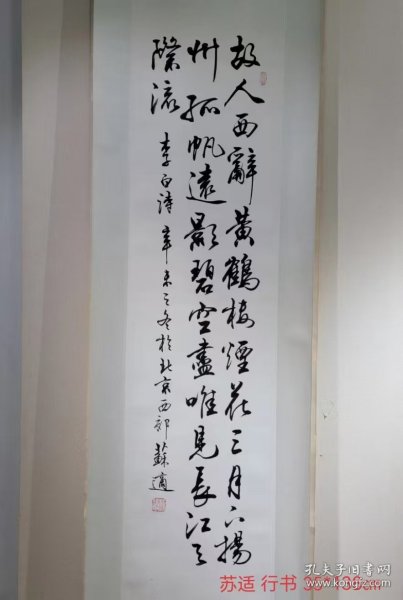 故人西辭黃鶴樓煙花三月下揚
州孤帆遠影碧空盡唯見長江天
際流
李白詩 辛未之冬於北京西郊 蘇適
苏适 行书
孔夫子旧书网
www.kongfz.com